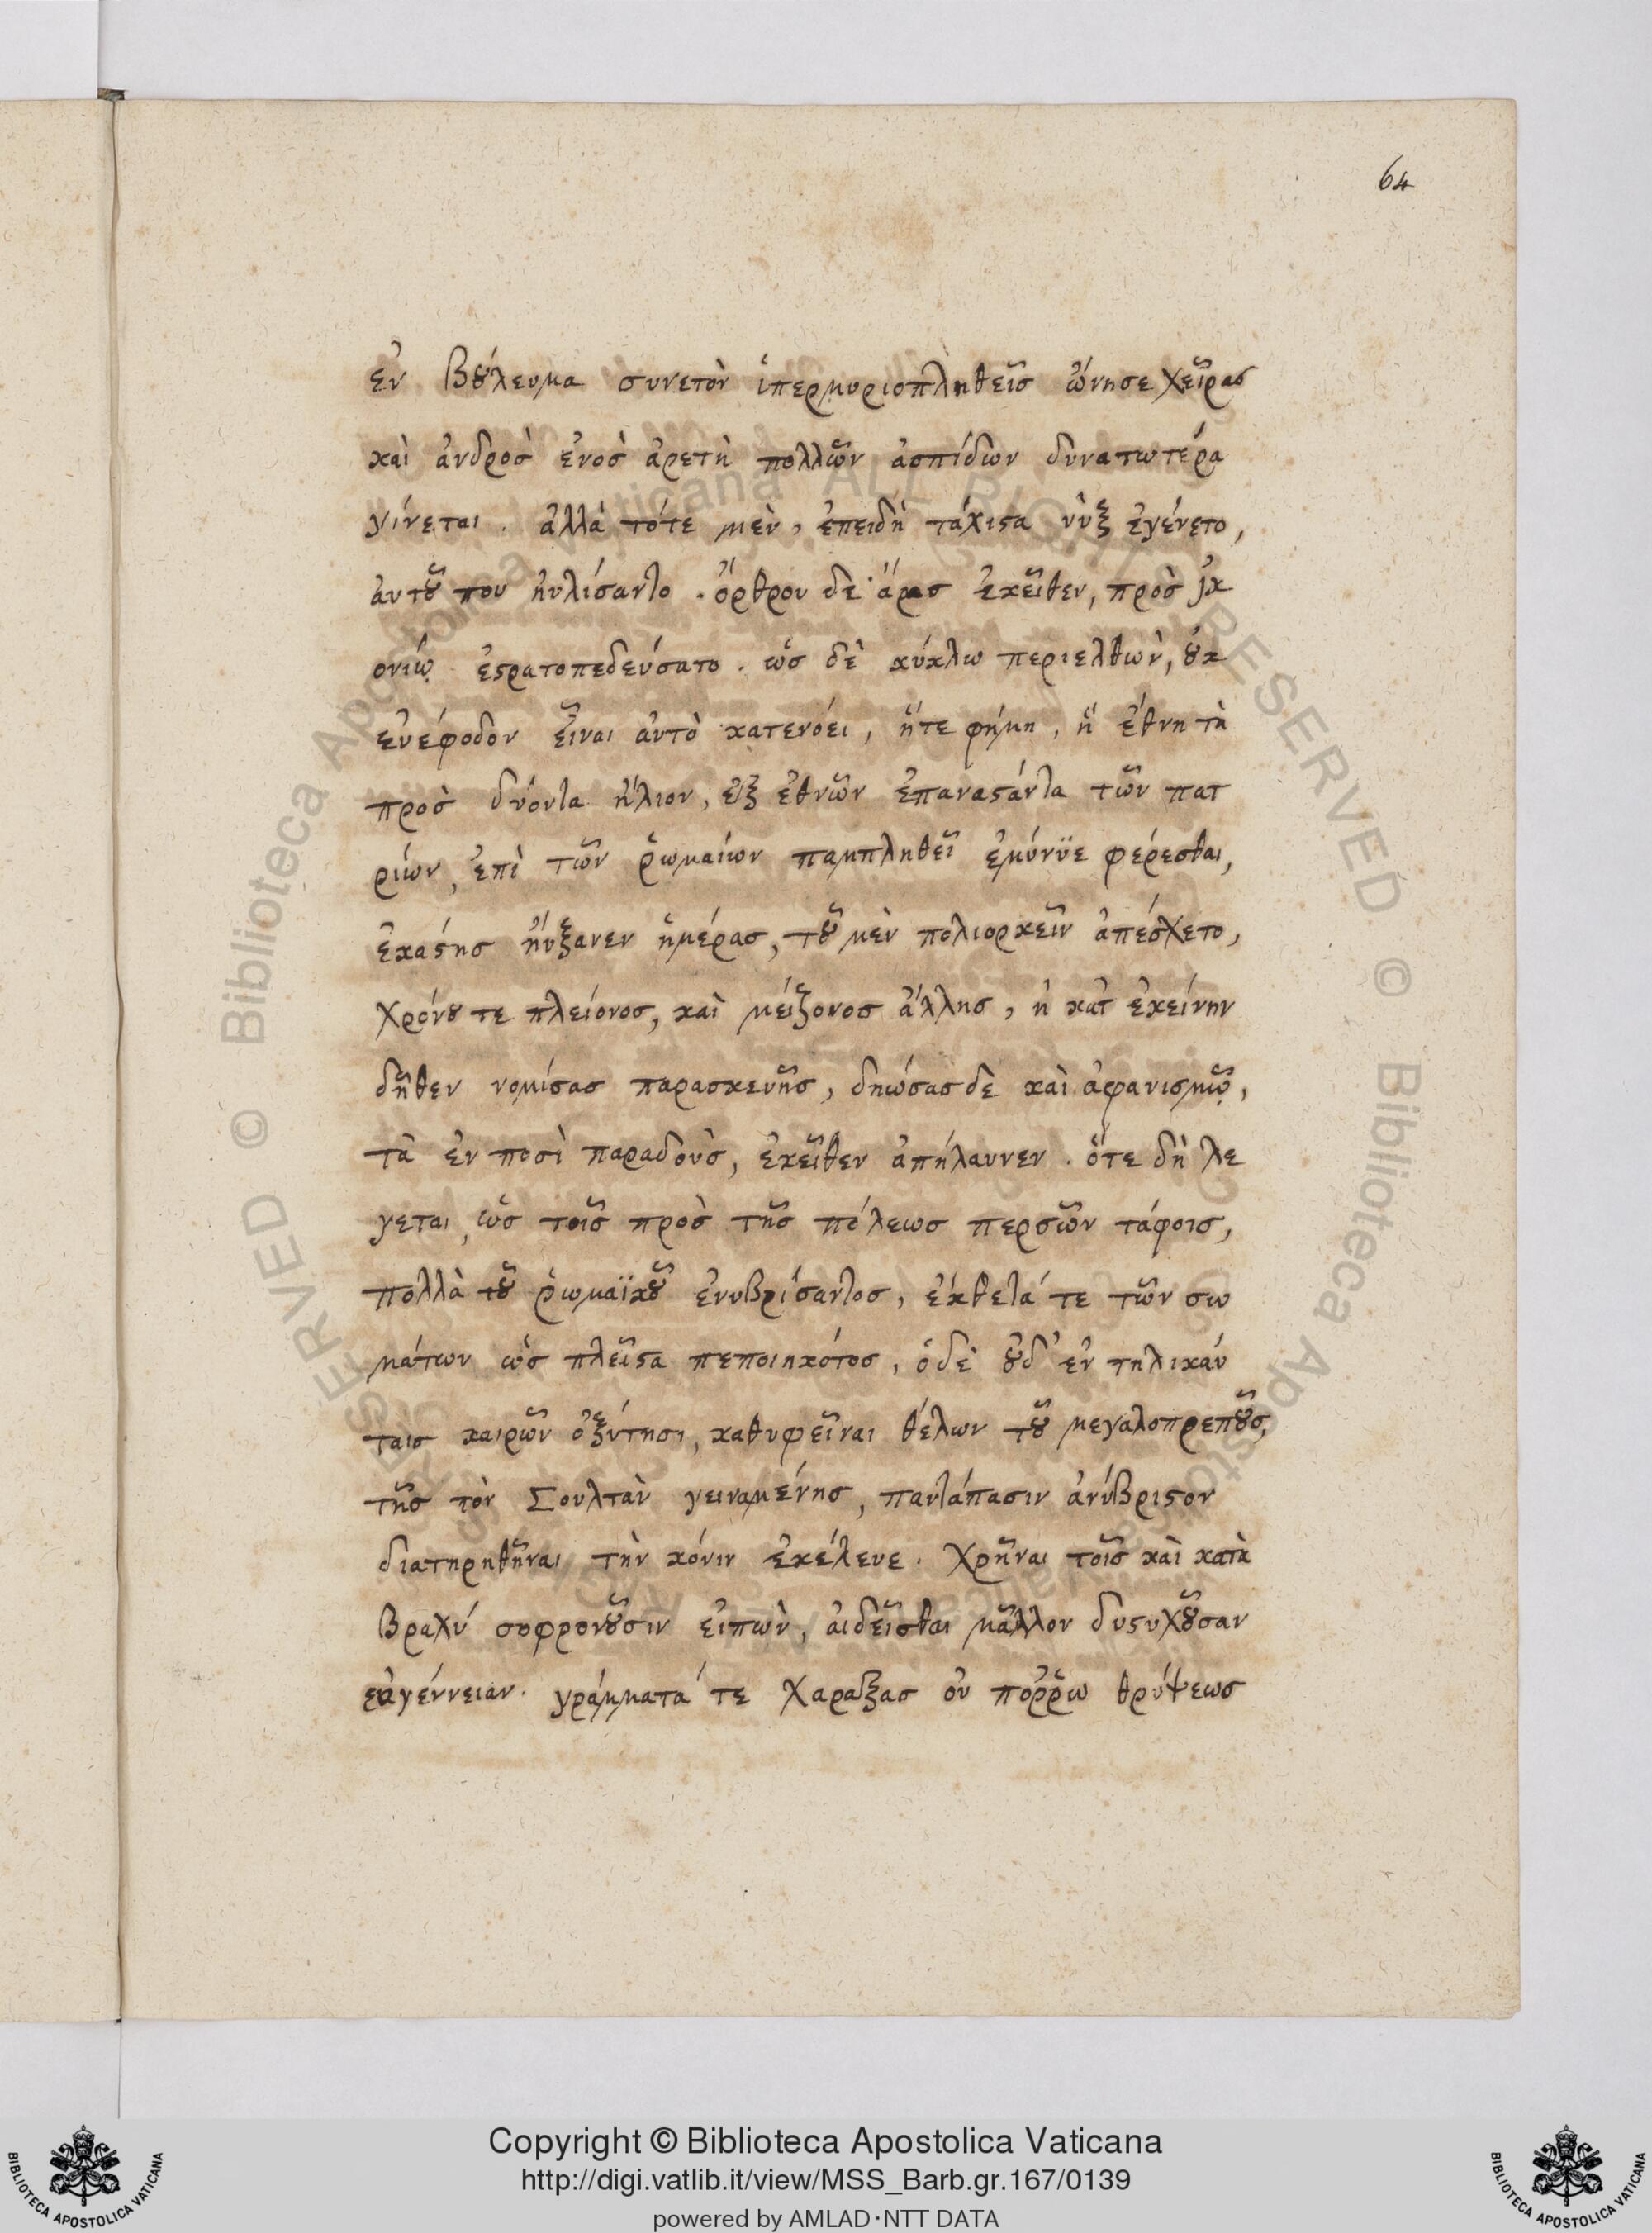 64
ἐν βούλευμα συνετὸν ὑπερμυριοπληθεῖς ὤνησε χεῖρας
καὶ ἀνδρὸς ἑνὸς ἀρετὴ πολλῶν ἀσπίδων δυνατωτέρα
γίνεται. ἀλλὰ τότε μὲν, ἐπειδὴ τάχιστα νὺξ ἐγένετο,
ἀυτοῦ που ἠυλίσαντο. ὄρθρου δε ἄρας ἐκεῖθεν, πρὸς ἰκ
ονίῳ ἐστρατοπεδεύσατο. ὡς δὲ κύκλω περιελθὼν, οὐκ
ἐυέφοδον εἶναι ἀυτὸ κατενόει, ἥτε φήμη, ἣ ἔθνη τὰ
πρὸς δύοντα ἥλιον, ἐξ ἐθνῶν ἐπαναστάντα τῶν πατ
ρίων, ἐπὶ τῶν ῥωμαίων παμπληθεῖ ἐμύνϋε φέρεσθαι,
ἑκάστης ἤυξανεν ἡμέρας, τοῦ μὲν πολιορκεῖν ἀπέσχετο,
χρόνου τε πλείονος, καὶ μείζονος ἄλλης, ἢ κατ ἐκείνην
δῆθεν νομίσας παρασκευῆς, δηώσας δε καὶ ἀφανισμῷ,
τὰ ἐν ποσὶ παραδοὺς, ἐκεῖθεν ἀπήλαυνεν. ὅτε δὴ λε
γεται, ὡς τοῖς πρὸς τῆς πόλεως περσῶν τάφοις,
πολλὰ τοῦ ῥωμαϊκοῦ ἐνυβρίσαντος, ἔκθετά τε τῶν σω
μάτων ὡς πλεῖστα πεποιηκότος, ὁ δὲ οὐδ' ἐν τηλικάυ
ταις καιρῶν ὀξύτησι, καθυφεῖναι θέλων τοῦ μεγαλοπρεποῦς,
τῆς τὸν Σουλτὰν γειναμένης, παντάπασιν ἀνύβριστον
διατηρηθῆναι τὴν κόνιν ἐκέλευε. χρῆναι τοῖς καὶ κατὰ
βραχύ σοφρονοῦσιν ἐιπὼν, ἀιδεῖσθαι μᾶλλον δυστυχοῦσαν
ἐυγέννειαν. γράμματά τε χαραξας ὀυ πόῤῥω θρύψεως
Copyright © Biblioteca Apostolica Vaticana
http://digi.vatlib.it/view/MSS_Barb.gr.167/0139
powered by AMLAD·NTT DATA